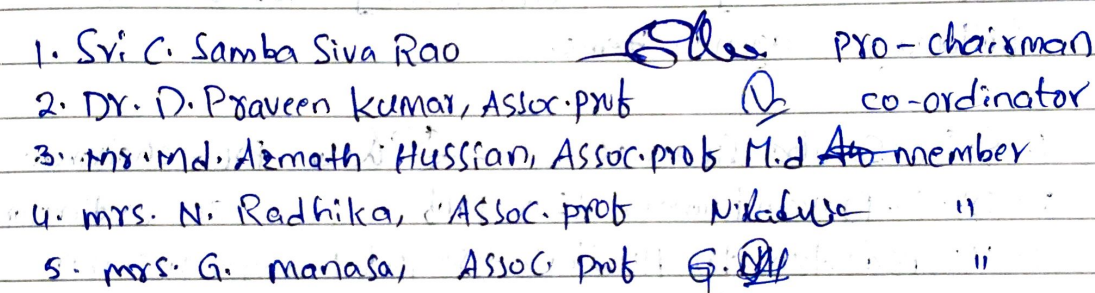 1. Sri C. Samba Siva Rao pro-chairman
2. Dr. D. Praveen kumar, Assoc.prof co-ordinator
3. Mr. Md. Azmath Hussian, Assoc.prof M.d member
4. mrs. N. Radhika, Assoc. prof N. Radhika "
5. mrs. G. manasa, Assoc prof G. "